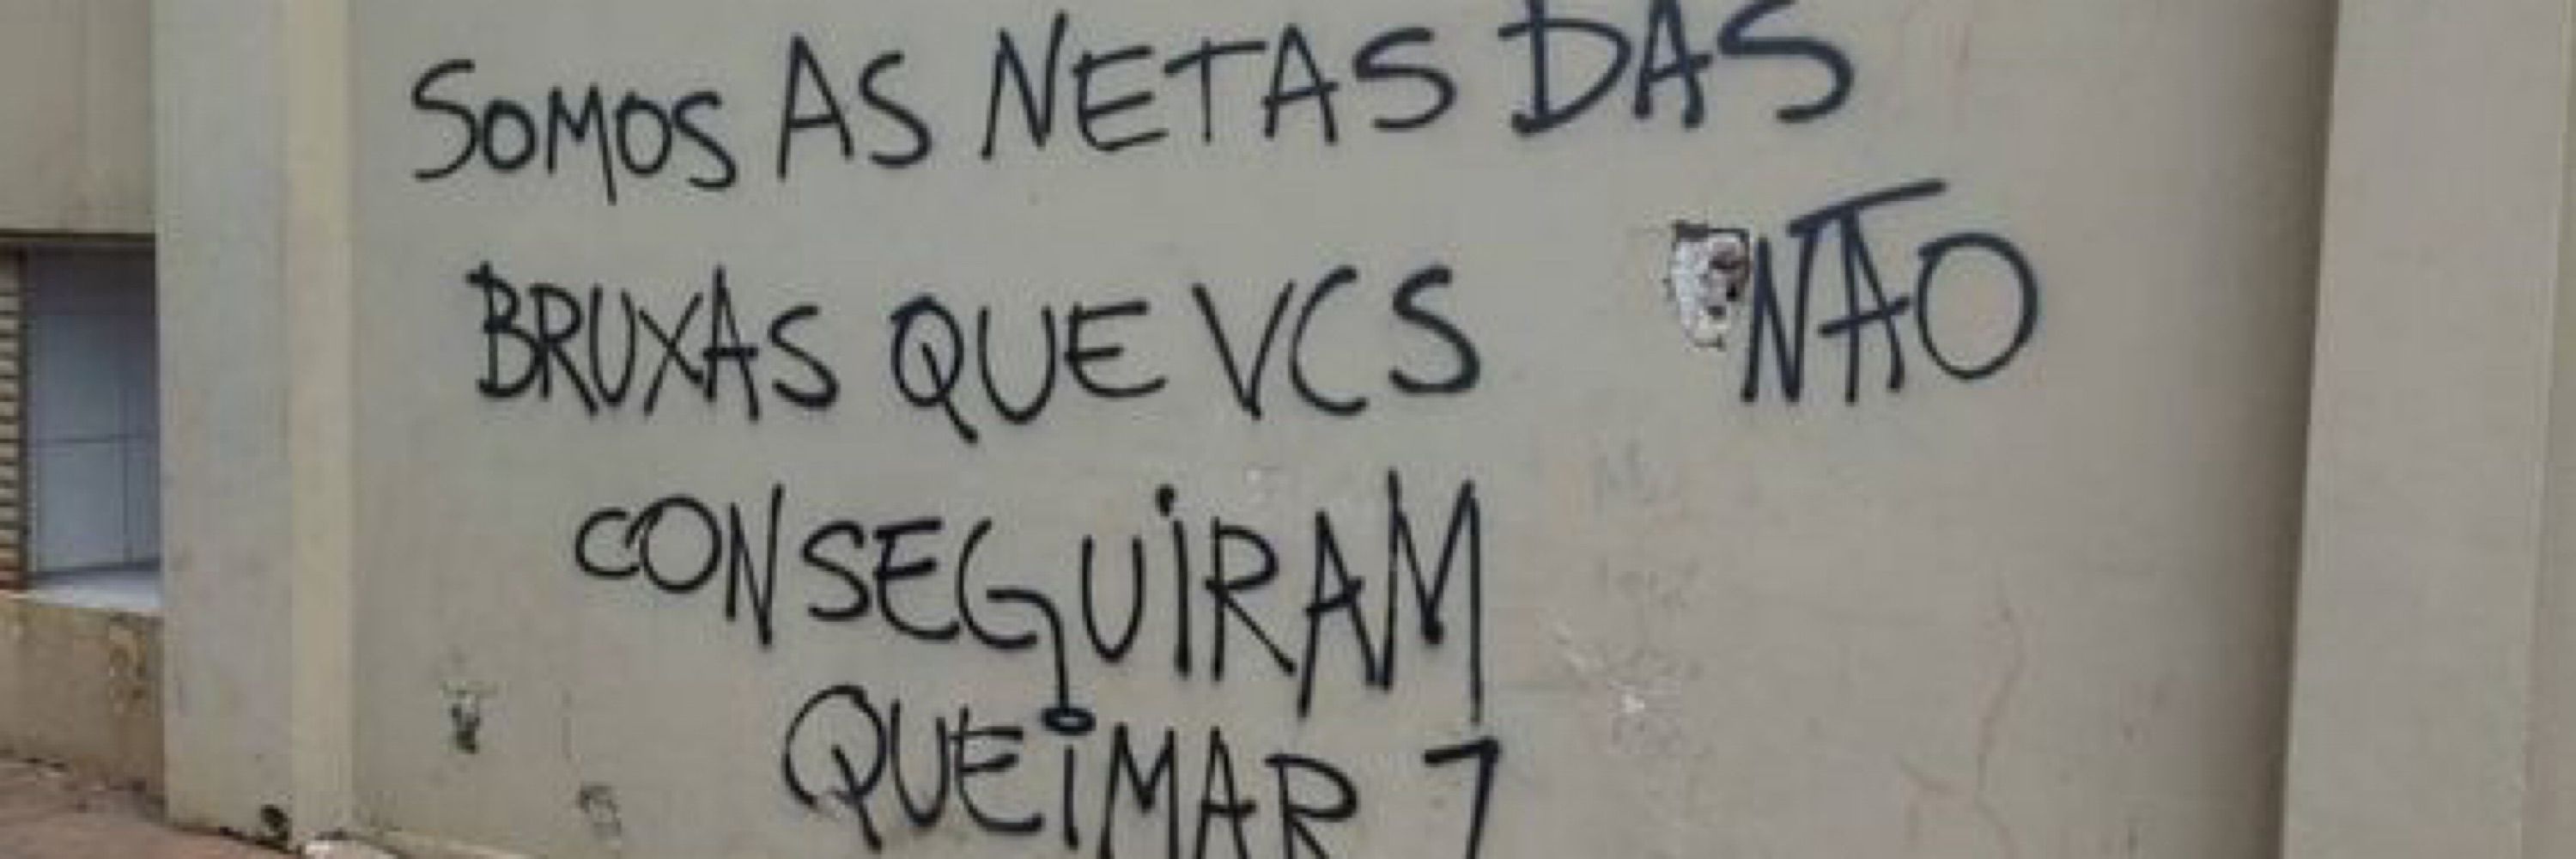 SOMOS AS NETAS DAS
BRUXAS QUE VCS NÃO
CONSEGUIRAM
QUEIMAR